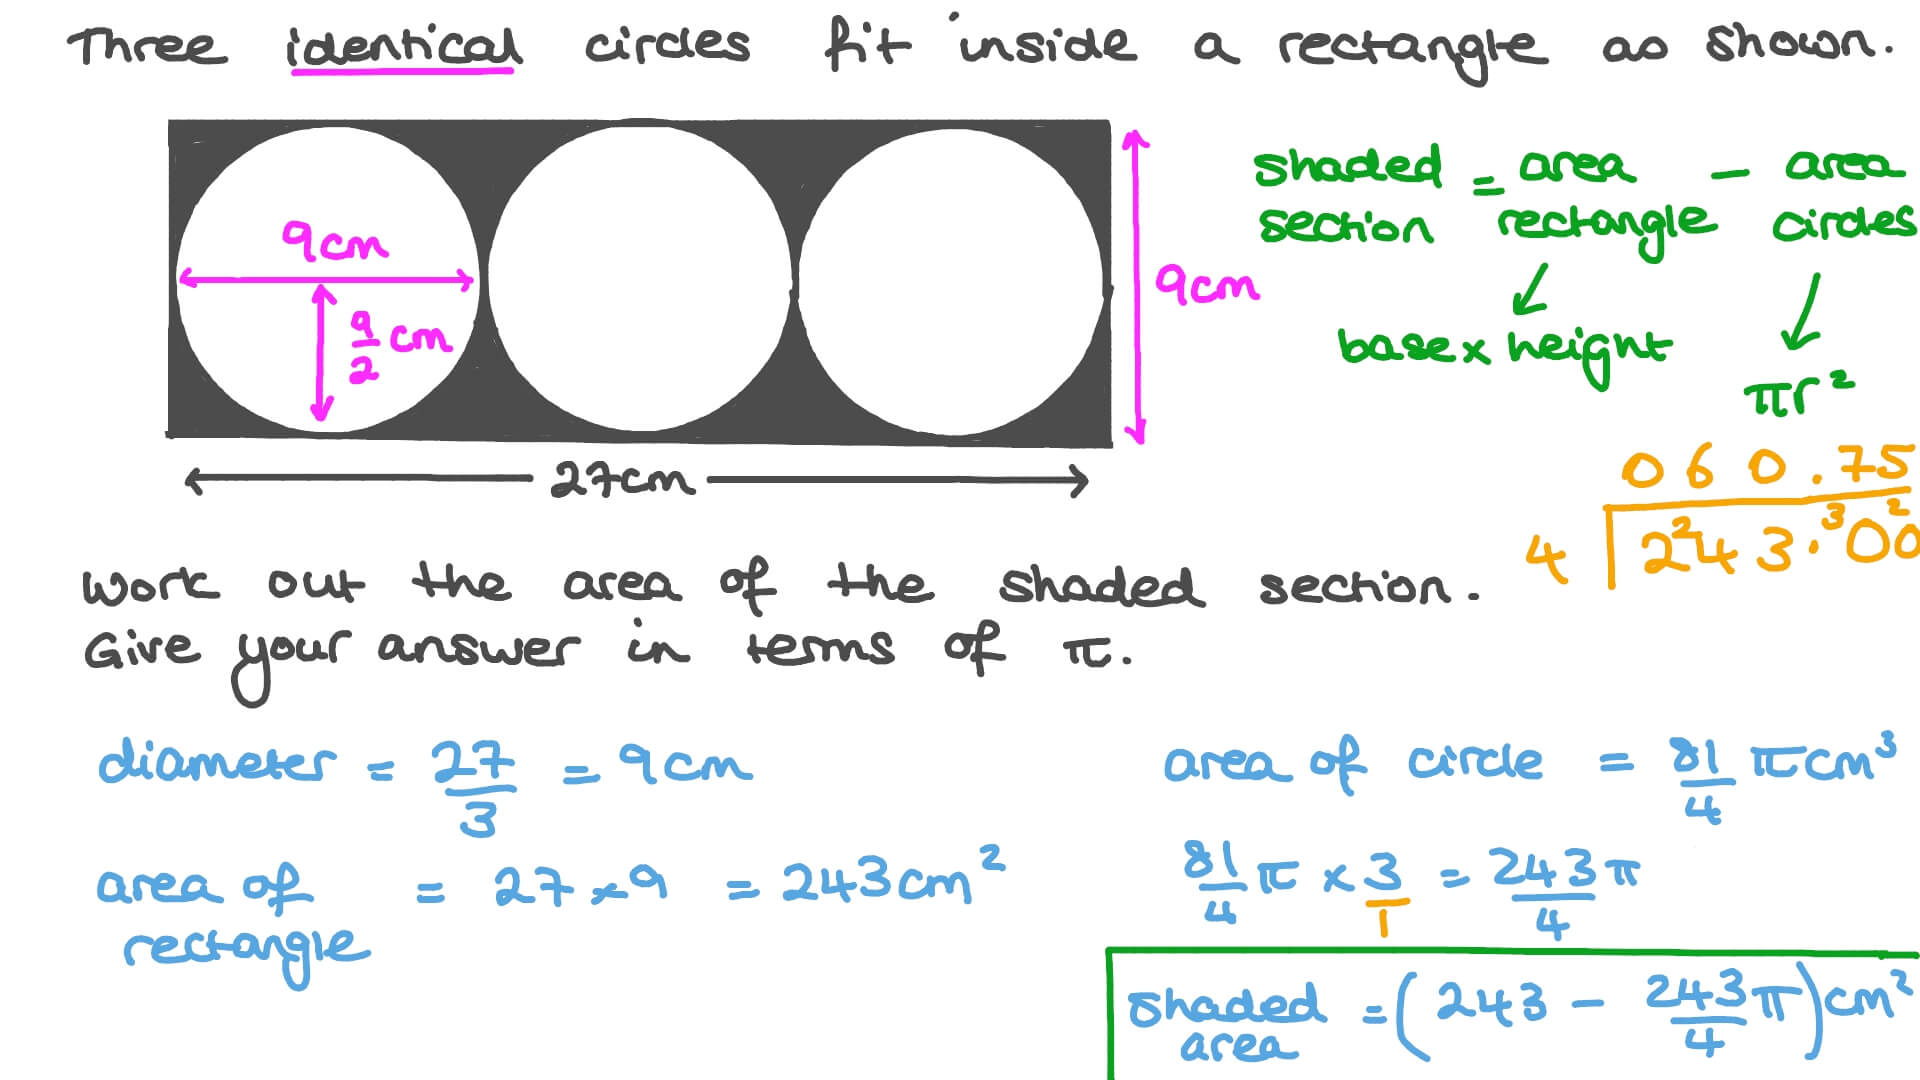 Three identical circles fit inside a rectangle as shown.
9cm
9/2 cm
9cm
27cm
shaded section = area rectangle - area circles
base x height
πr²
060.75
4 2²43.³0²0
Work out the area of the shaded section.
Give your answer in terms of π.
diameter = 27/3 = 9cm
area of rectangle = 27 x 9 = 243cm²
area of circle = 81/4 πcm³
81/4 π x 3/1 = 243/4 π
shaded area = (243 - 243/4 π)cm²